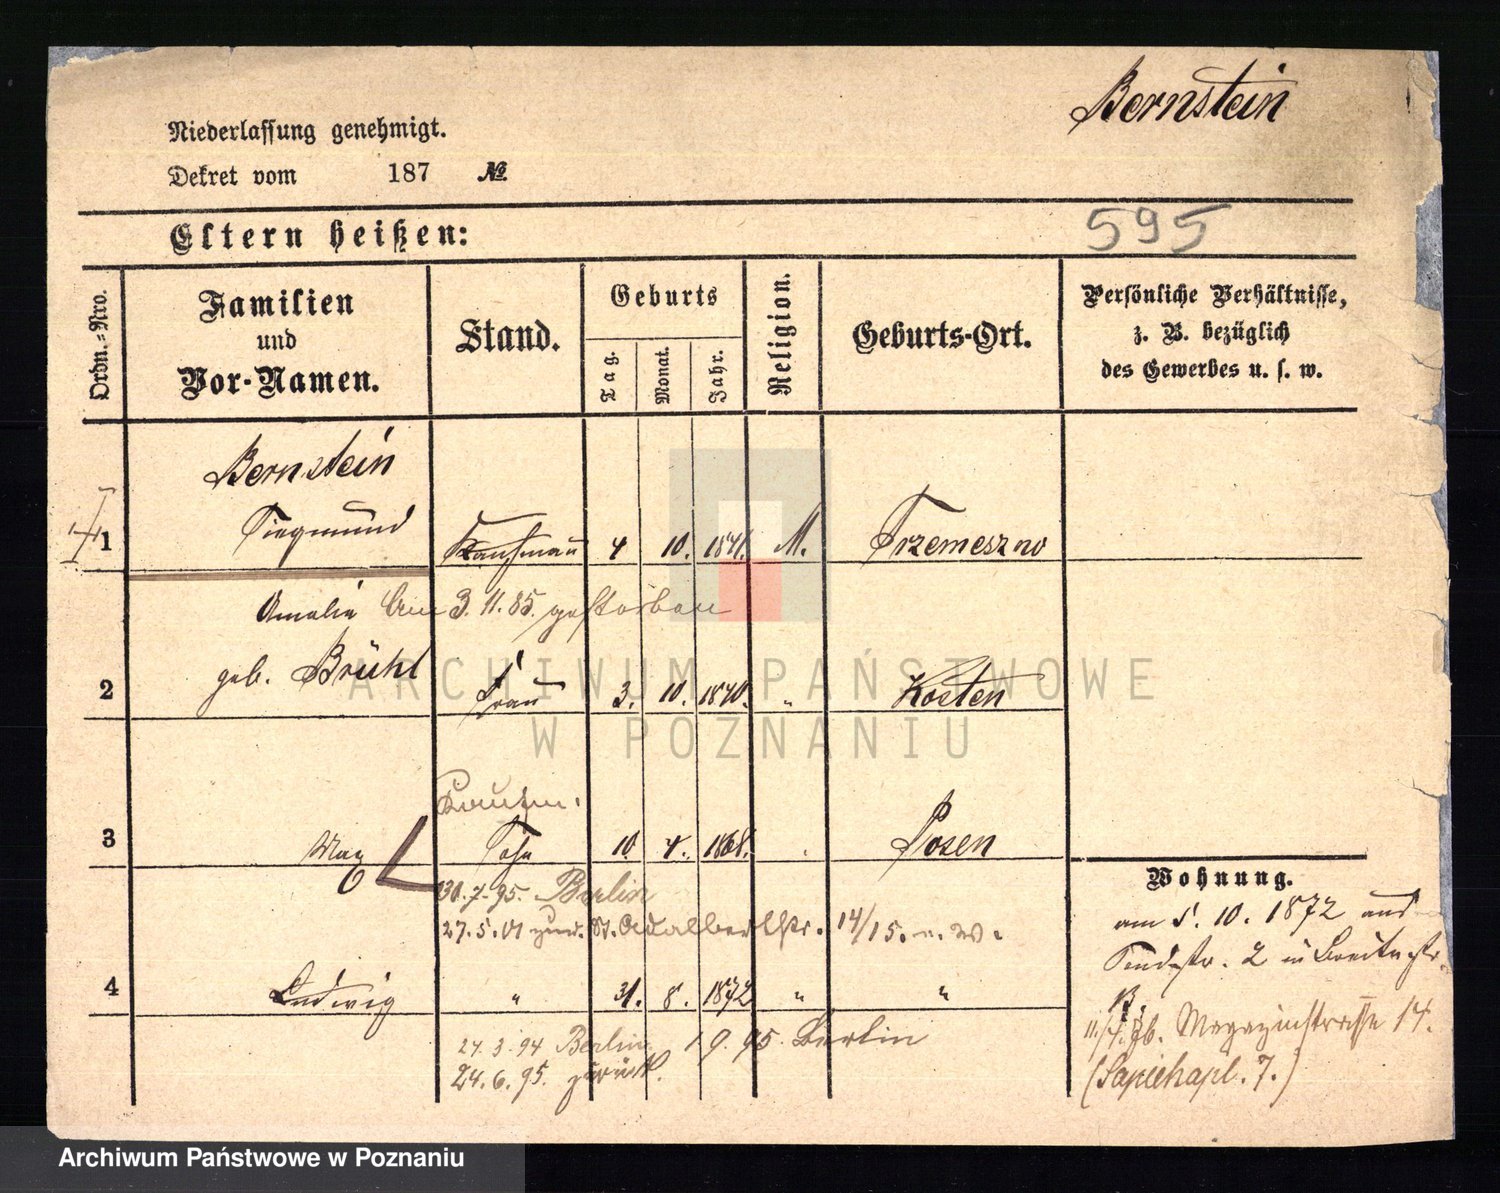 Bernstein
Niederlassung genehmigt.
Dekret vom 187 №.
Eltern heißen:
595
Ordn.-Nro.
Familien
und
Vor-Namen.
Stand.
Geburts
Tag.
Monat.
Jahr.
Religion.
Geburts-Ort.
Persönliche Verhältnisse,
z. B. bezüglich
des Gewerbes u. s. w.
Bernstein
1 Siegmund Kaufmann 4 10. 1841. M. Trzemeszno
Amalie Am 3. 11. 85. gestorben
2 geb. Brühl Frau 3. 10. 1840. " Kosten
Kaufm.
3 Max Sohn 10. 4. 1868. Posen
30.7.95. Berlin
27.5.01 zur. St. Adalbertstr. 14/15. n. W.
4 Ludwig " 31. 8. 1872 " "
24.3.94 Berlin 1 9. 95. Berlin
24.6.95. zurück.
Wohnung.
am 5. 10. 1872 aus
2 in Breitestr.
Magazinstrasse 14.
(Sapiehapl. 7.)
ARCHIWUM PAŃSTWOWE
W POZNANIU
Archiwum Państwowe w Poznaniu